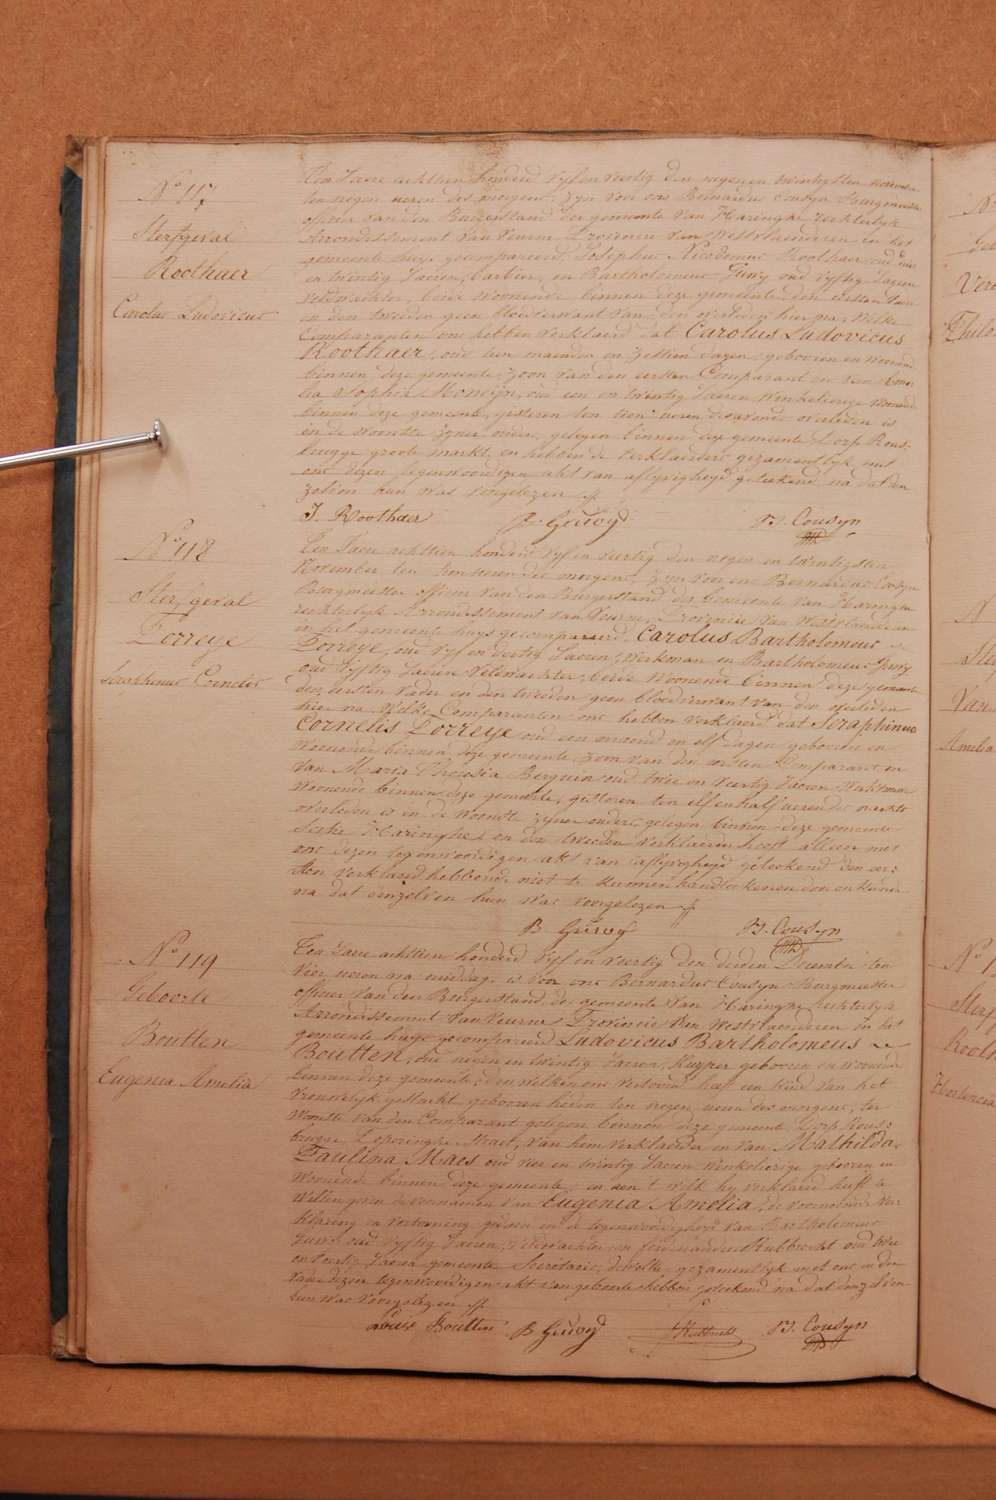 N.º 117
Sterfgeval
Roothaer
Carolus Ludovicus
Ten Jaere achttien honderd vyf en veertig den negen en twintigsten november
ten negen ueren des morgens, zyn voor ons Bernardus Cousyn Burgemeester
officier van den Burgerstand der gemeente van Haringhe rechterlyk
Arrondissement van Veurne Provincie van Westvlaenderen in het
gemeente huys gecompareerd Josephus Nicodemus Roothaer oud
en twintig Jaeren, barbier, en Bartholomeus Geury oud vyftig Jaeren
veldwachter, beide woonende binnen deze gemeente, den eersten vader
en den tweeden geen bloedverwant van den overleden hier na, welke
Comparanten ons hebben verklaerd dat Carolus Ludovicus
Roothaer, oud tien maenden en zestien dagen, gebooren en woonende
binnen deze gemeente, zoon van den eersten Comparant en van
Sophia oud een en twintig Jaeren Winkelierege woonende
binnen deze gemeente, gisteren ten tien ueren des avonds overleden is
in de woonste zyner ouders, gelegen binnen deze gemeente Dorp Rous-
brugge groote markt, en hebben de verklaerders gezamentlyk met
ons dezen tegenwoordigen akt van aflyvigheyd geteekend na dat den
zelven hun was voorgelezen
J. Roothaer B. Geury B. Cousyn
N.º 118
Sterfgeval
Porreye
Seraphinus Cornelis
Ten Jaere achttien honderd vyf en veertig den negen en twintigsten
November ten ueren des morgens, zyn voor ons Bernardus Cousyn
Burgmeester officier van den Burgerstand der Gemeente van Haringhe
rechterlyk Arrondissement van Veurne, Provincie van Westvlaenderen
in het gemeente huys gecompareerd Carolus Bartholomeus
Porreye, oud vyf en dertig Jaeren, Werkman en Bartholomeus Geury
oud vyftig Jaeren Veldwachter, beide Woonende binnen deze gemeente
den eersten vader en den tweeden geen bloedverwant van den overleden
hier na welke Comparanten ons hebben verklaerd dat Seraphinus
Cornelis Porreye oud een maend en elf dagen gebooren en
woonende binnen deze gemeente zoon van den eersten Comparant en
van Maria Theresia Berquin oud twee en veertig Jaeren Werkvrouw
woonende binnen deze gemeente, gisteren ten elf en half ueren des nachts
overleden is in de woonste zyner ouders, gelegen binnen deze gemeente
Haringhe en den tweeden verklaerder heeft alleen met
ons dezen tegenwoordigen akt van aflyvigheyd geteekend den eer-
sten verklaerd hebbende niet te kunnen handteekenen
na dat denzelven hun was voorgelezen
B. Geury B. Cousyn
N.º 119
Geboorte
Boutten
Eugenia Amelia
Ten Jaere achttien honderd vyf en veertig den derden December ten
vier ueren na middag, is voor ons Bernardus Cousyn Burgmeester
officier van den Burgerstand der gemeente van Haringhe rechterlyk
Arrondissement van Veurne Provincie van Westvlaenderen in het
gemeente huys gecompareerd Ludovicus Bartholomeus
Boutten, oud negen en twintig Jaeren, Kuyper gebooren en woonende
binnen deze gemeente, den welken ons vertoond heeft een kind van het
vrouwelyk geslacht, gebooren heden ten negen ueren des morgens, ter
woonste van den Comparant gelegen binnen deze gemeente Dorp Rous-
brugge, Poperinghe straet, van hem verklaerder en van Mathilda
Paulina Maes oud vier en twintig Jaeren winkelierege gebooren en
woonende binnen deze gemeente, en aen 't welk hy verklaerd heeft te
willen geven de voornamen van Eugenia Amelia, de voornoemde ver-
klaring en vertooning gedaen in de tegenwoordigheyd van Bartholomeus
Geury oud vyftig Jaeren, veldwachter en Ferdinandus Rubbrecht oud twee
en veertig Jaeren gemeente Secretaris, dewelke gezamentlyk met ons en den
vader dezen tegenwoordigen akt van geboorte hebben geteekend na dat denzelven
hun was voorgelezen
Louis Boutten B Geury f Rubbrecht B. Cousyn